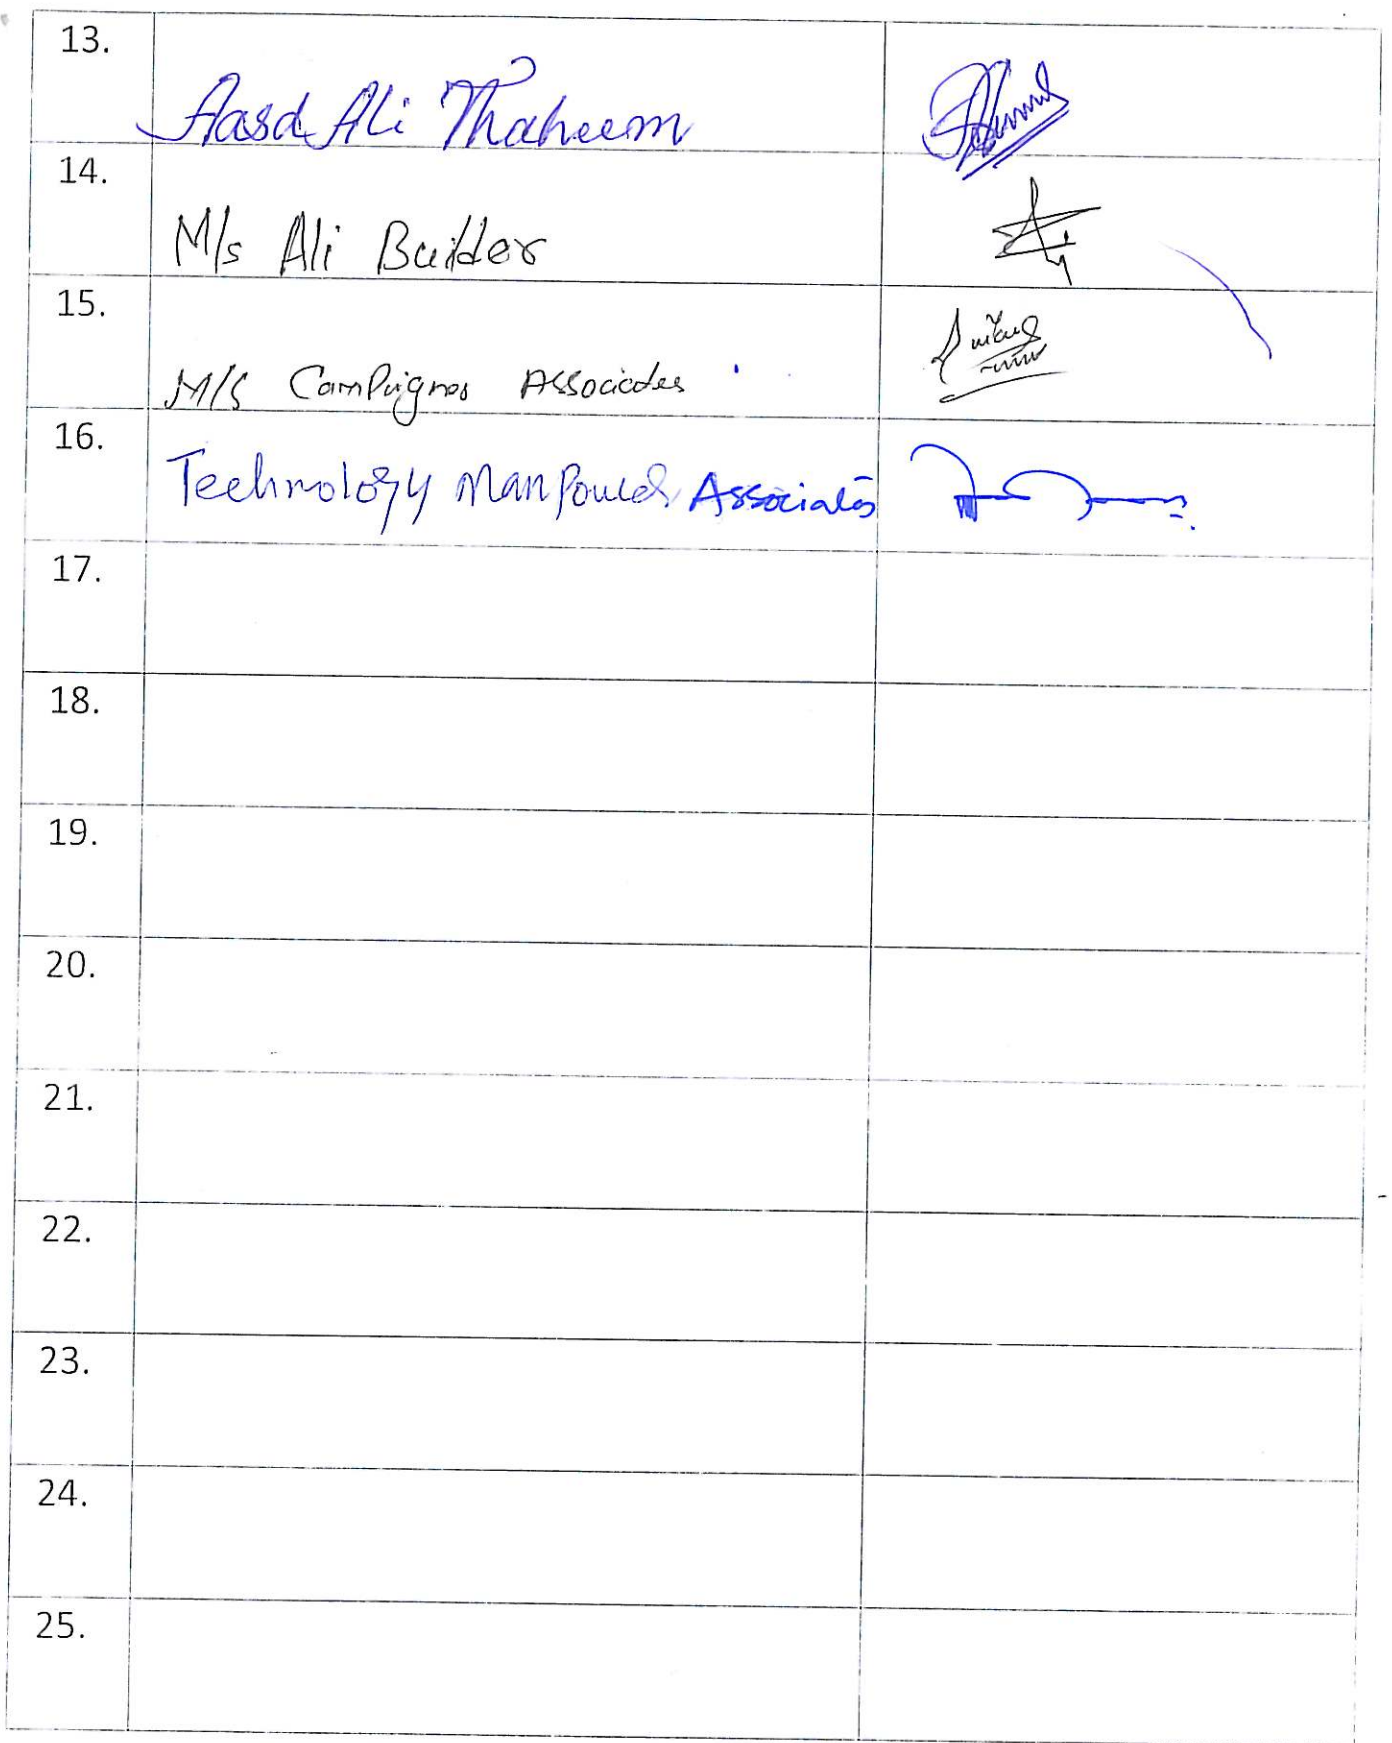 13. Aasd Ali Thaheem
14. M/s Ali Builder
15. M/S Campaignes Associates
16. Technology ManPower Associates
17.
18.
19.
20.
21.
22.
23.
24.
25.